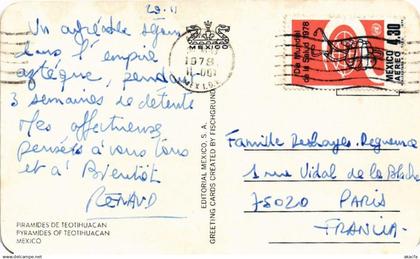 23.11
Un agréable séjour
dans l'empire
aztèque, pendant
3 semaines de détente
Mes affectueuses
pensées à vous tous
et à Bientôt
RENAUD
PIRAMIDES DE TEOTIHUACAN
PYRAMIDS OF TEOTIHUACAN
MEXICO
EDITORIAL MEXICO, S. A.
GREETING CARDS CREATED BY FISCHGRUND
MEXICO
1978
Dia Mundial
de la Salud 1978
MEXICO
AEREO
4.30
Famille Deshayes
1 rue Vidal de la Blache
75020 PARIS
FRANCIA
delcampe.net